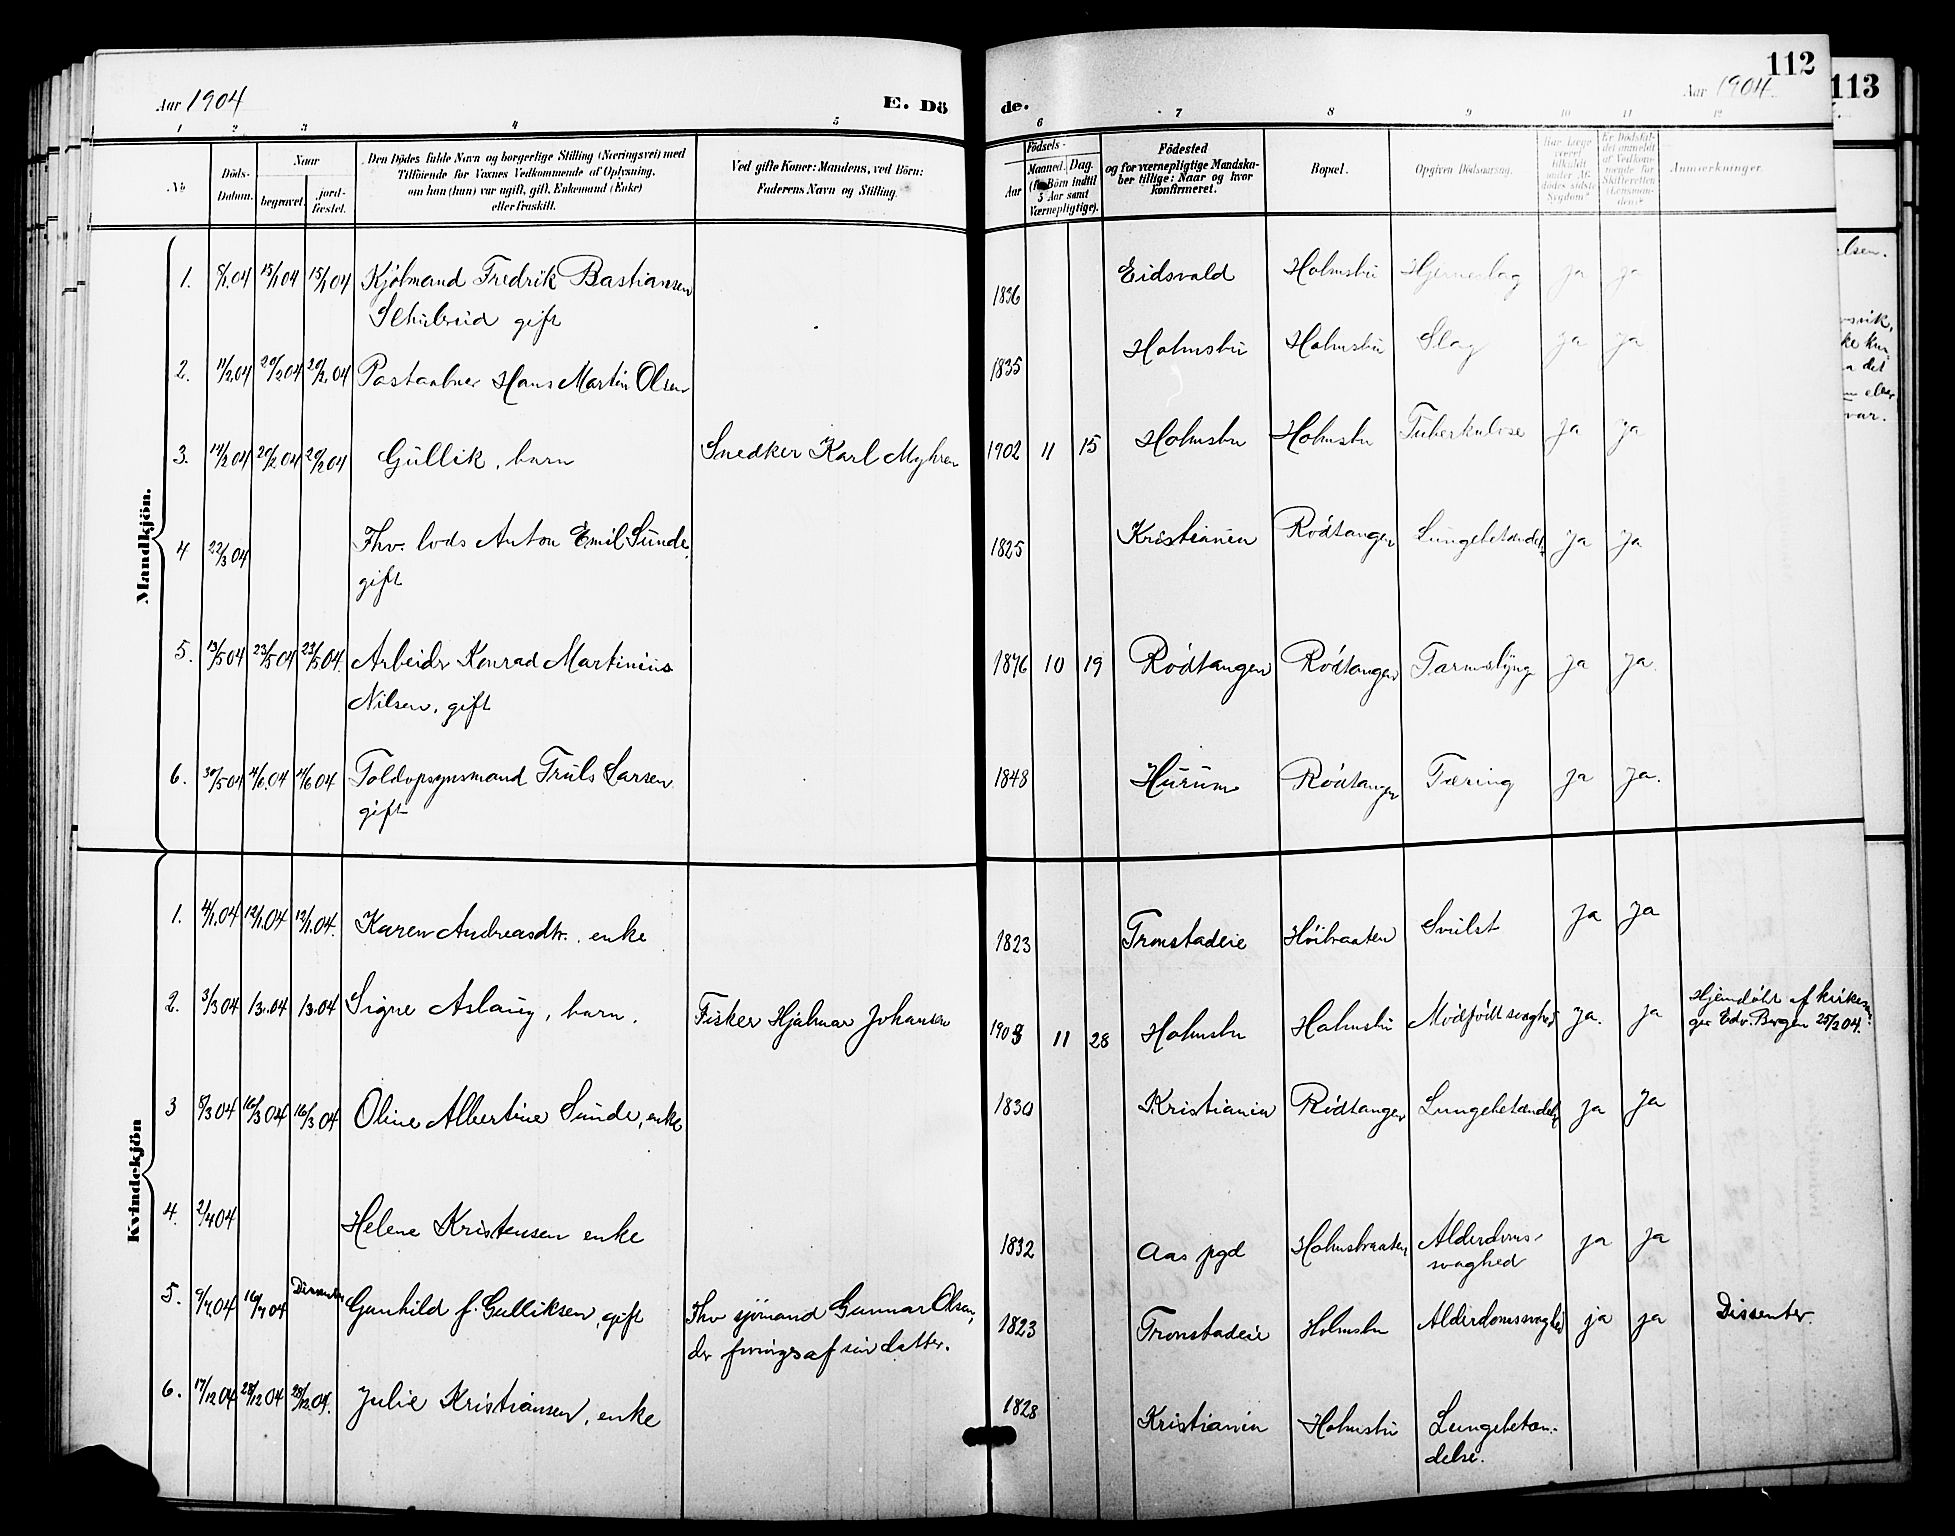 Aar 1904
E. Dö
de.
Aar 1904.
112
113
1 2 3 4 5 6 7 8 9 10 11 12
No
Döds-Datum.
Naar
begravet.
jord-fæstet.
Den Dödes fulde Navn og borgerlige Stilling (Næringsvei) med
Tilföiende for Voxnes Vedkommende af Oplysning,
om han (hun) var ugift, gift, Enkemand (Enke)
eller fraskilt.
Ved gifte Koner: Mandens, ved Börn:
Faderens Navn og Stilling.
Födsels-
Aar
Maaned. Dag.
(for Börn indtil
5 Aar samt
Værnepligtige).
Födested
og for værnepligtige Mandska-
ber tillige: Naar og hvor
konfirmeret.
Bopæl.
Opgiven Dödsaarsag.
Har Læge
været
tilkaldt
under Af-
dødes sidste
Sygdom?
Er Dødsfal-
det anmeldt
af Vedkom-
mende for
Skifteretten
(Lensman-
den)?
Anmærkninger.
Mandkjön.
1. 8/1.04 15/1 04 15/1 04 Kjöbmand Fredrik Bastiansen
Schulerud gift
1836 Eidsvold Holmsbu Hjerneslag ja ja
2. 11/2 04 20/2 04 20/2 04 Postaabner Hans Martin Olsen
1835 Holmsbu Holmsbu Slag ja ja
3. 14/2 04 20/2 04 20/2 04 Gullik, barn Snedker Karl Myhren
1902 11 15 Holmsbu Holmsbu Tuberkulose ja ja
4 22/3 04 Fhv. lods Anton Emil Sunde,
gift
1825 Kristiania Rödtangen Lungebetændels ja ja
5. 13/5 04 23/5 04 23/5 04. Arbeidr Konrad Martinius
Nilsen, gift
1876 10 19 Rödtangen Rödtangen Tarmslyng ja ja.
6. 30/5 04 4/6.04 4/6 04 Toldopsynsmand Truls Larsen
gift
1848 Hurum Rödtangen Tæring ja ja.
Kvindekjön
1. 4/1.04 12/1.04 12/1.04. Karen Andreasdtr., enke
1823 Tronstadeie Höibraaten Svulst ja ja
2. 3/3 04 13.04 13.04 Signe Aslaug, barn. Fisker Hjalmar Johansen
1903 11 28 Holmsbu Holmsbu Medfödt svaghed ja. ja Hjemdöbt af kirkesan-
ger Edv. Bergan 25/2 04.
3 8/3 04 16/3 04 16/3 04 Oline Albertine Sunde, enke
1830 Kristiania Rödtangen Lungebetændels ja ja
4. 2/4 04 Helene Kristensen enke
1832 Aas pgd Holmsbraaten Alderdoms-
svaghed ja ja
5. 9/7 04 16/7 04 Dissenter Gunhild f. Gulliksen, gift Fhv sjömand Gunnar Olsen,
der forsörges af sin datter.
1823 Tronstadeie Holmsbu Alderdomssvaghed ja ja Dissenter.
6. 17/12 04 28/12 04 28/12 04. Julie Kristiansen, enke
1828 Kristiania Holmsbu Lungebetæn-
delse.